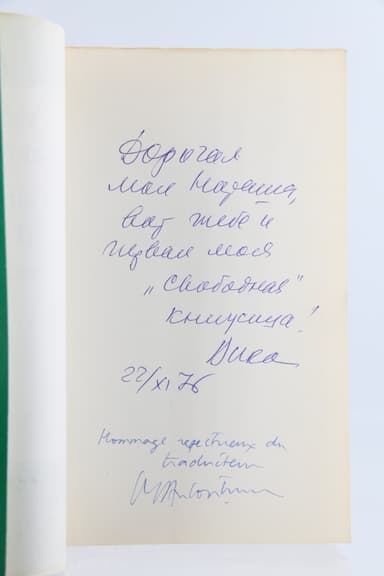 Дорогая
моя Наташа,
вот тебе и
первая моя
„Свободная"
книжица!
Вика
22/XI 76
Hommage respectueux du
traducteur